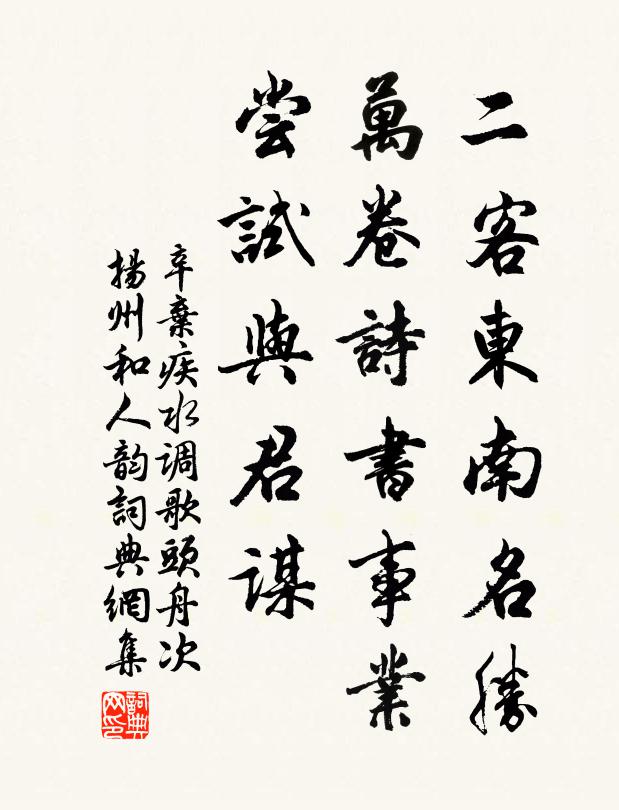 二客東南名勝
萬卷詩書事業
嘗試與君謀
辛棄疾水调歌頭舟次
揚州和人韵詞典網集
詞典网印